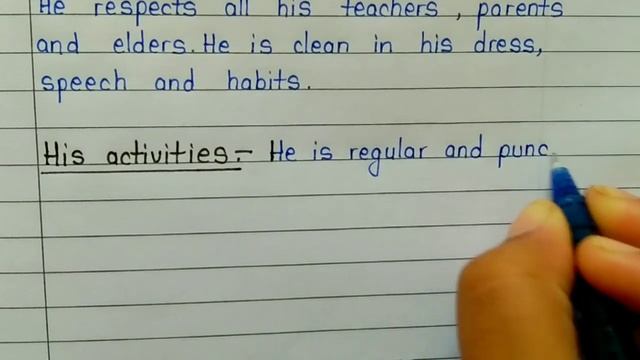 He respects all his teachers, parents
and elders. He is clean in his dress,
speech and habits.
His activities:- He is regular and punc